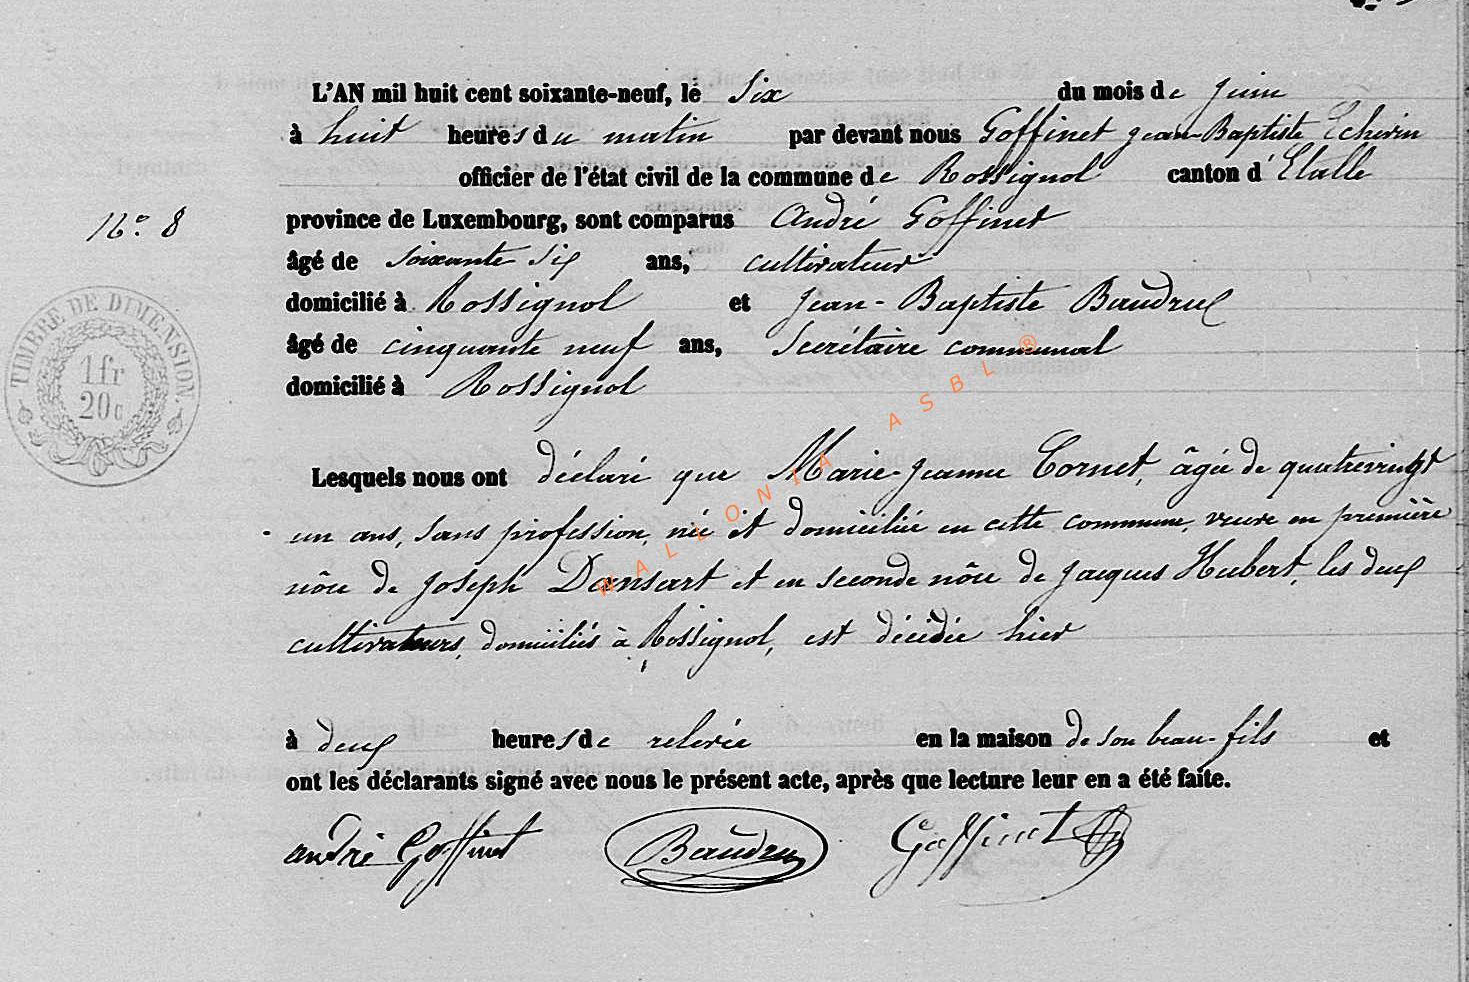 L'AN mil huit cent soixante-neuf, le Six du mois de Juin
à huit heures du matin par devant nous Goffinet Jean-Baptiste Echevin
officier de l'état civil de la commune de Rossignol canton d'Etalle
N° 8 province de Luxembourg, sont comparus André Goffinet
âgé de soixante six ans, cultivateur
domicilié à Rossignol et Jean-Baptiste Baudrux
âgé de cinquante neuf ans, Secrétaire communal
domicilié à Rossignol
TIMBRE DE DIMENSION.
1fr
20c
Lesquels nous ont déclaré que Marie-Jeanne Cornet, âgée de quatrevingt
un ans, sans profession, née et domiciliée en cette commune, veuve en première
nôce de Joseph Dansart et en seconde nôce de Jacques Hubert, les deux
cultivateurs, domiciliés à Rossignol, est décédée hier
à deux heures de relevée en la maison de son beau-fils et
ont les déclarants signé avec nous le présent acte, après que lecture leur en a été faite.
André Goffinet Baudrux Goffinet
WALLONIA ASBL ®